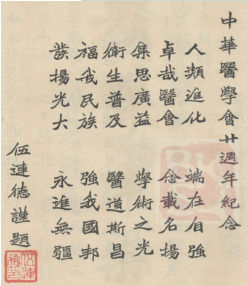 中華醫學會廿週年紀念
人類進化 端在自強
卓哉醫會 念載名揚
集思廣益 學術之光
衛生普及 醫道斯昌
福我民族 強我國邦
發揚光大 永進無疆
伍連德謹題